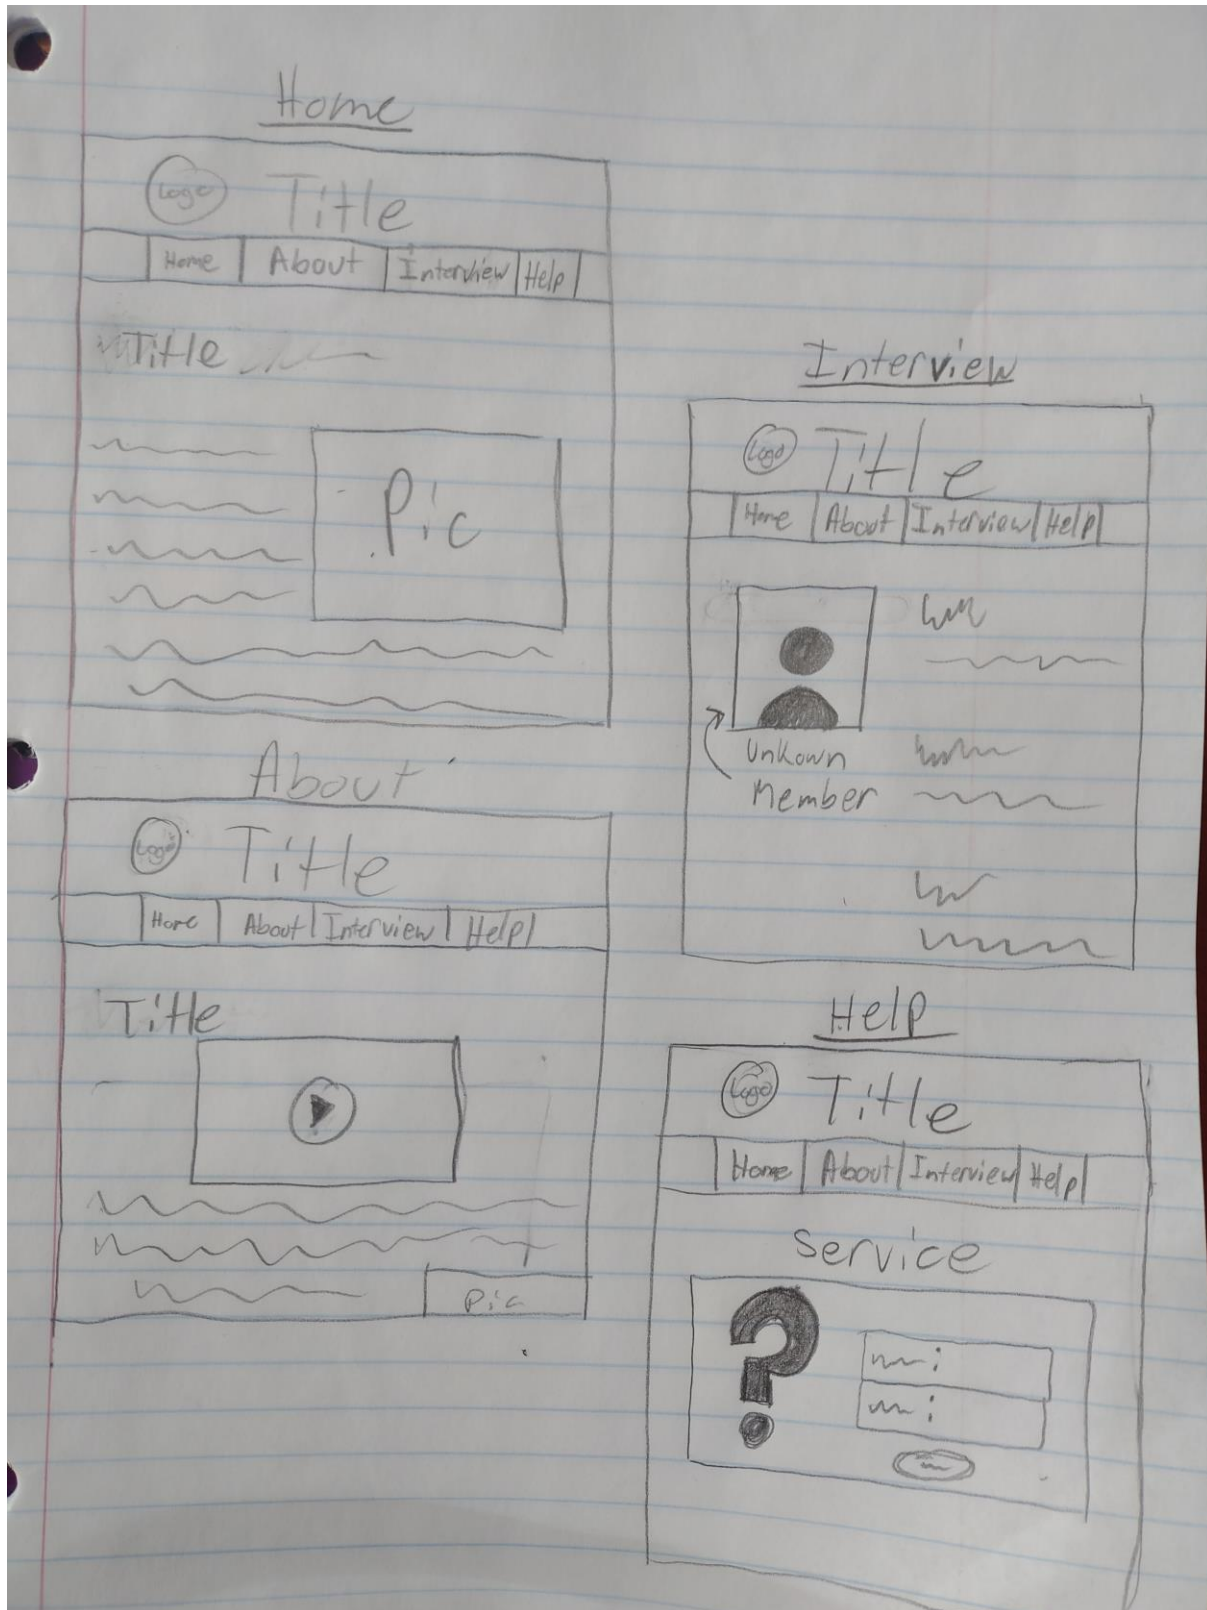 Home
Logo Title
Home About Interview Help
Title
Pic
About
Logo Title
Home About Interview Help
Title
Pic
Interview
Logo Title
Home About Interview Help
Unkown
Member
Help
Logo Title
Home About Interview Help
Service
?
: 
: